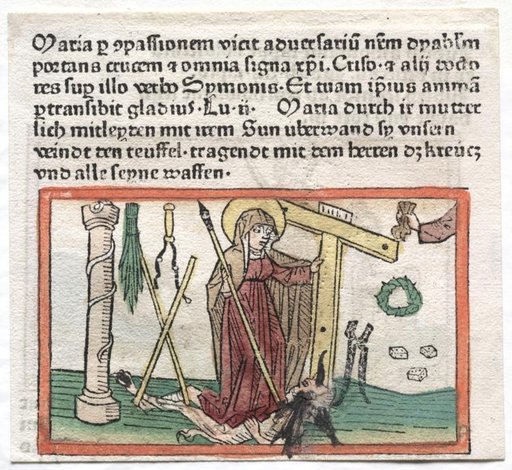 Maria ꝑ ꝯpassionem vicit aduersariū nr̄m dyabl̄m
portans crucem ⁊ omnia signa xp̄i. Criso. ⁊ alij docto
res sup illo verbo Symonis. Et tuam ip̄ius animā
ꝑtransibit gladius. Lu. ij. Maria durch ir mutter
lich mitleyden mit irem Sun uberwand sy vnsern
veindt den teuffel. tragendt mit dem herren dz kreucz
vnd alle seyne waffen.